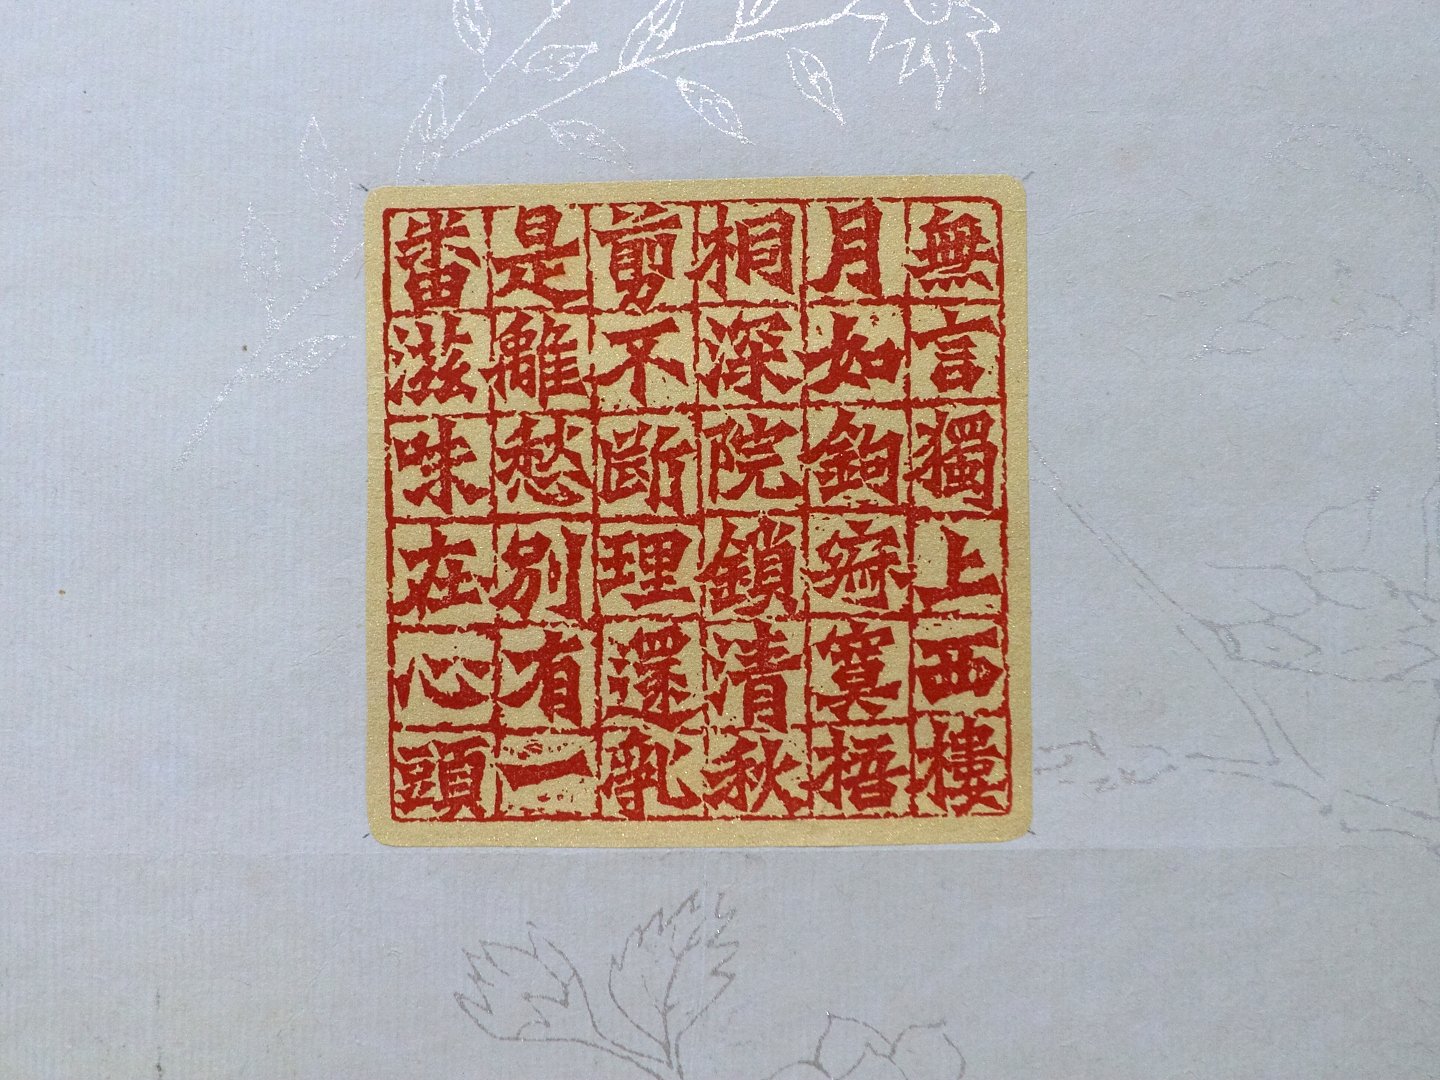 無言獨上西樓
月如鉤寂寞梧
桐深院鎖清秋
剪不斷理還亂
是離愁別有一
番滋味在心頭